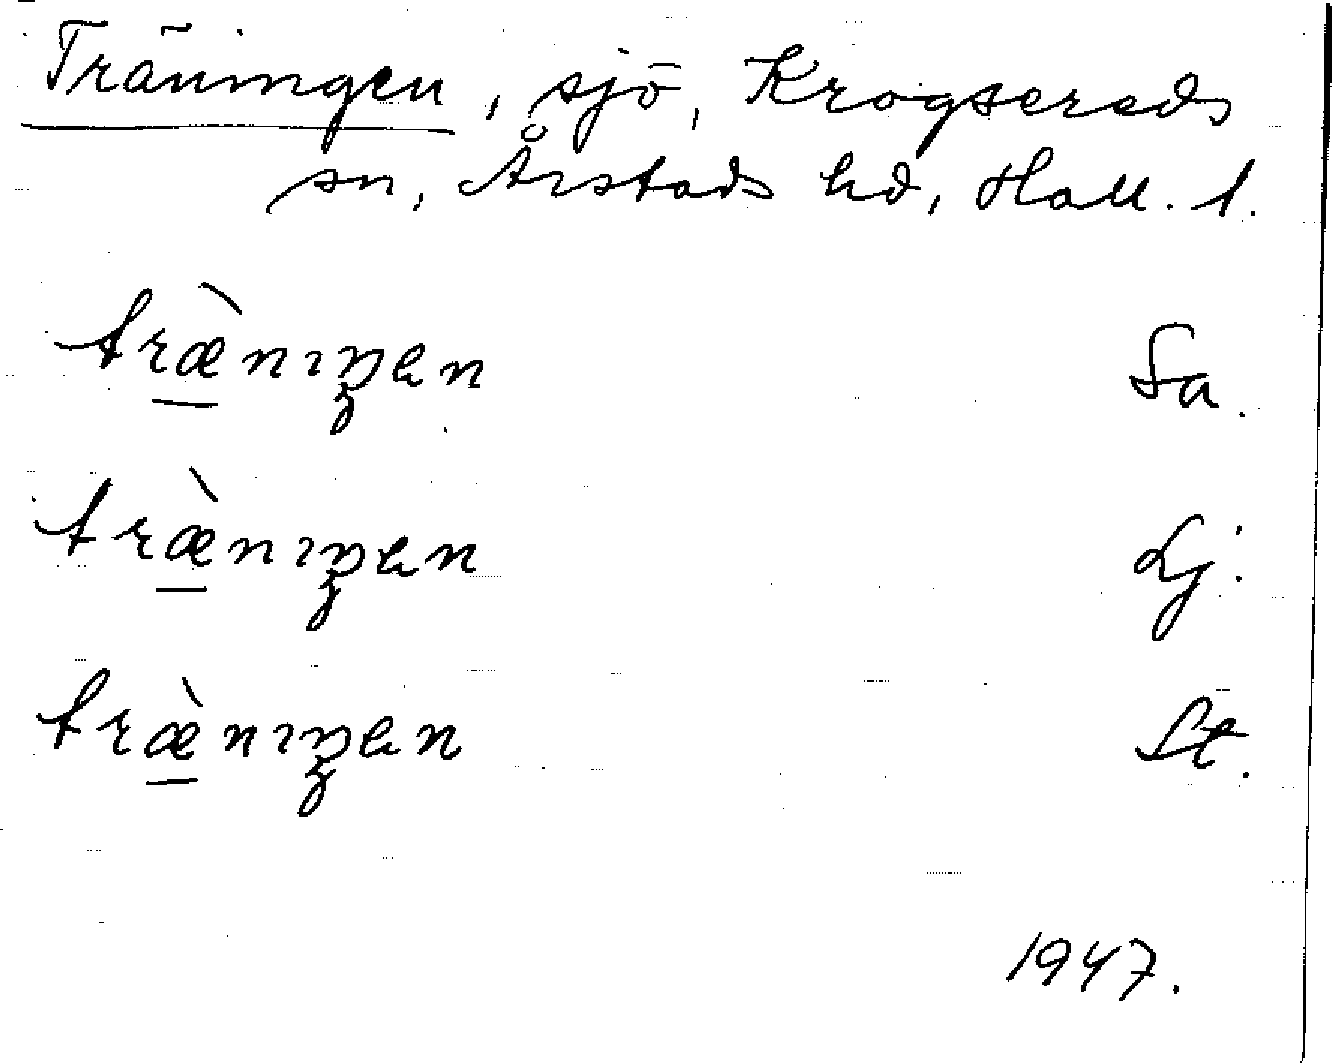 Träningen, sjö, Krogsereds
sn, Årstads hd, Hall. l.
træ̀nıŋen Sa.
træ̀nıŋen Lj.
træ̀nıŋen St.
1947.